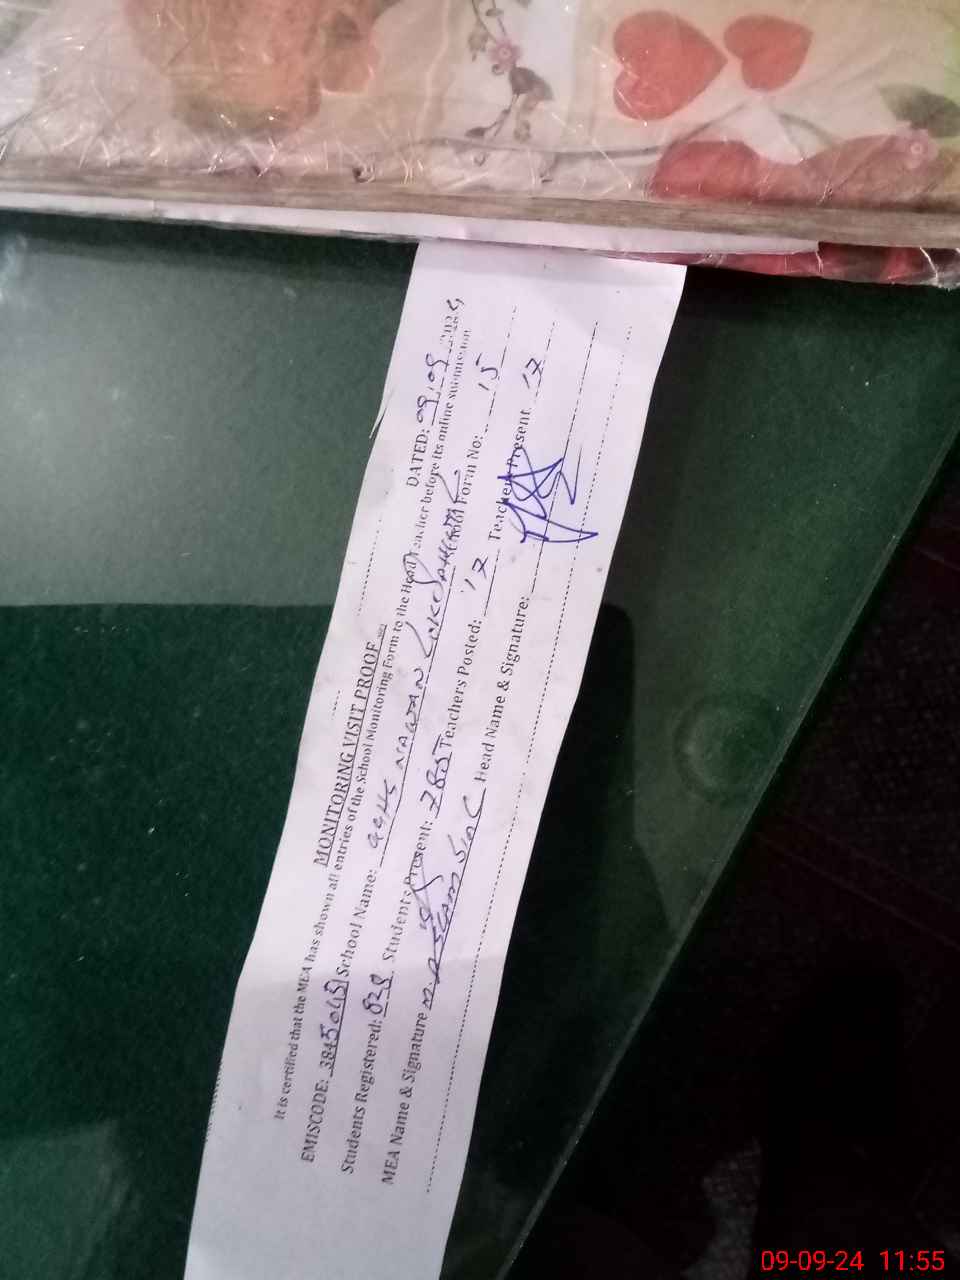 MONITORING VISIT PROOF
DATED: 09.09.2024
It is certified that the MEA has shown all entries of the School Monitoring Form to the Head Teacher before its online submission
EMISCODE: School Name: NAWAN Form No: 15
Students Registered: 828 Students Present: 785 Teachers Posted: 17 Teachers Present 17
MEA Name & Signature M. ASLAM Head Name & Signature:
09-09-24 11:55